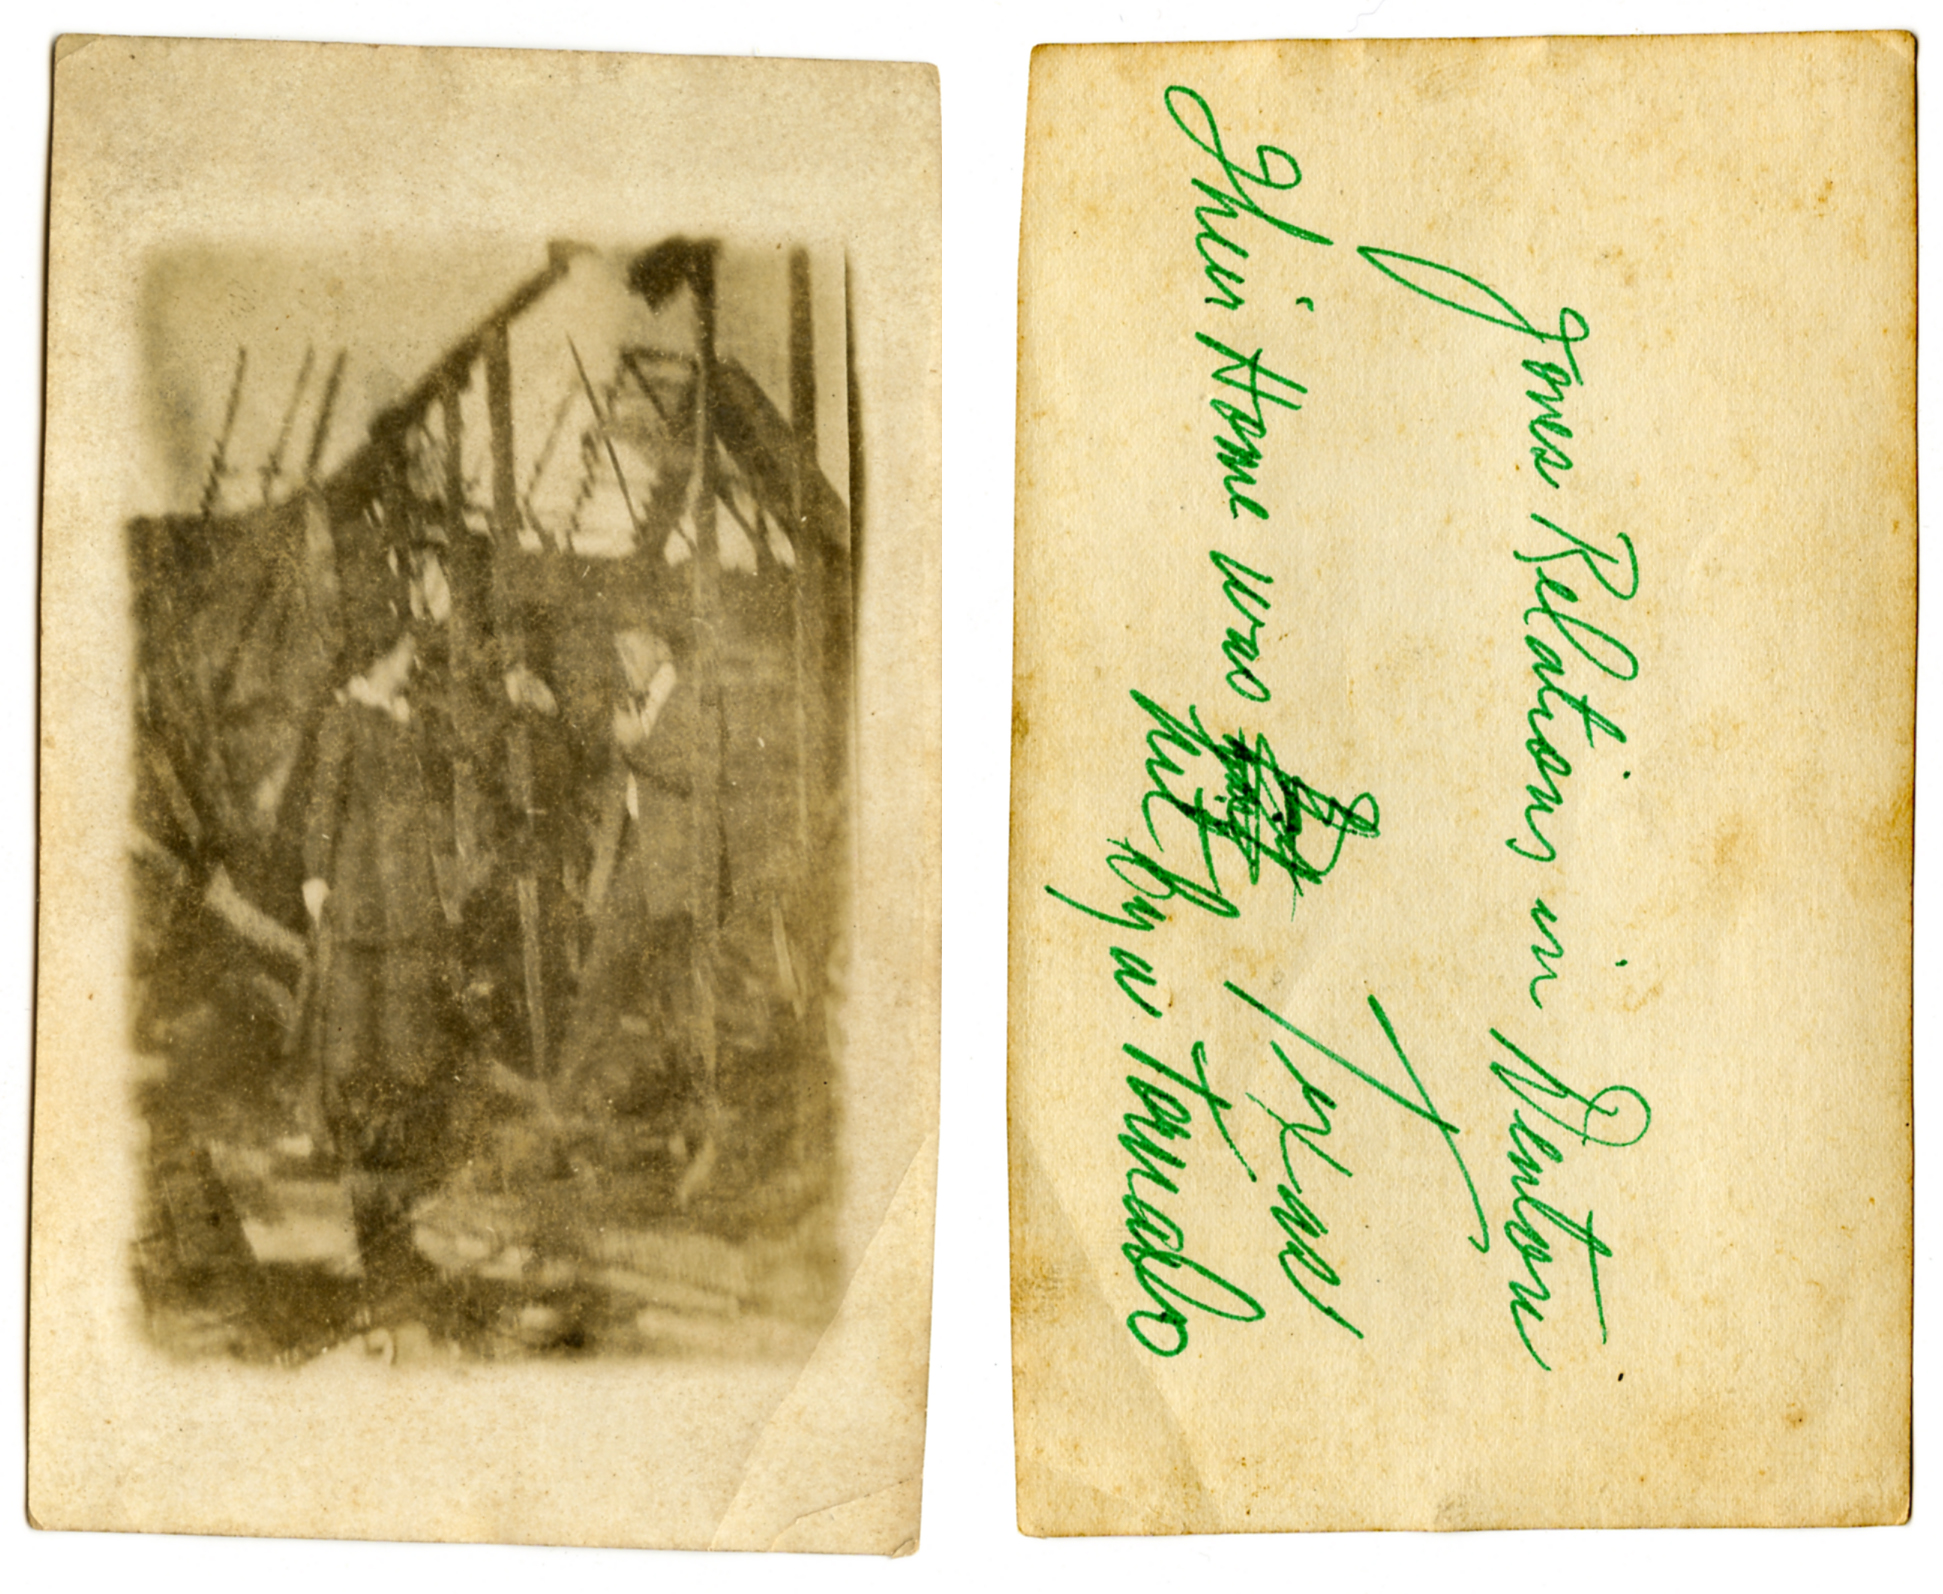 Jones Relations in Denton
Texas
Their Home was
hit by a Tornado